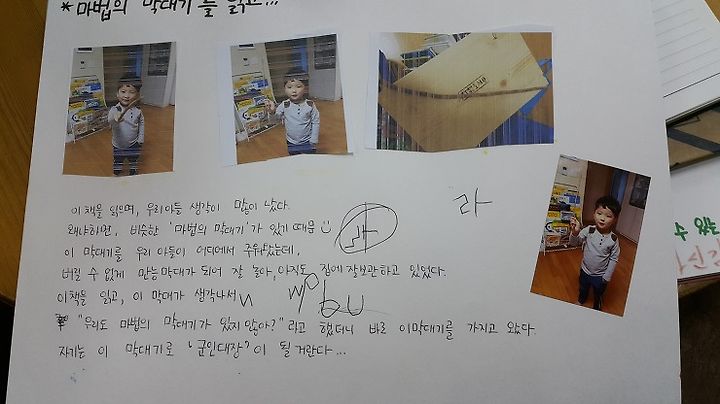 *마법의 막대기를 읽고...
이 책을 읽으며, 우리아들 생각이 많이 났다.
왜냐하면, 비슷한 '마법의 막대기'가 있기 때문
라
라
이 막대기를 우리 아들이 어디에서 주워왔는데,
버릴 수 없게 만능막대가 되어 잘 놀아, 아직도 집에 잘보관하고 있었다.
이책을 읽고, 이 막대가 생각나서
"우리도 마법의 막대기가 있지 않아?" 라고 했더니 바로 이막대기를 가지고 왔다.
자기는 이 막대기로 '군인대장'이 될거란다...
수 있는